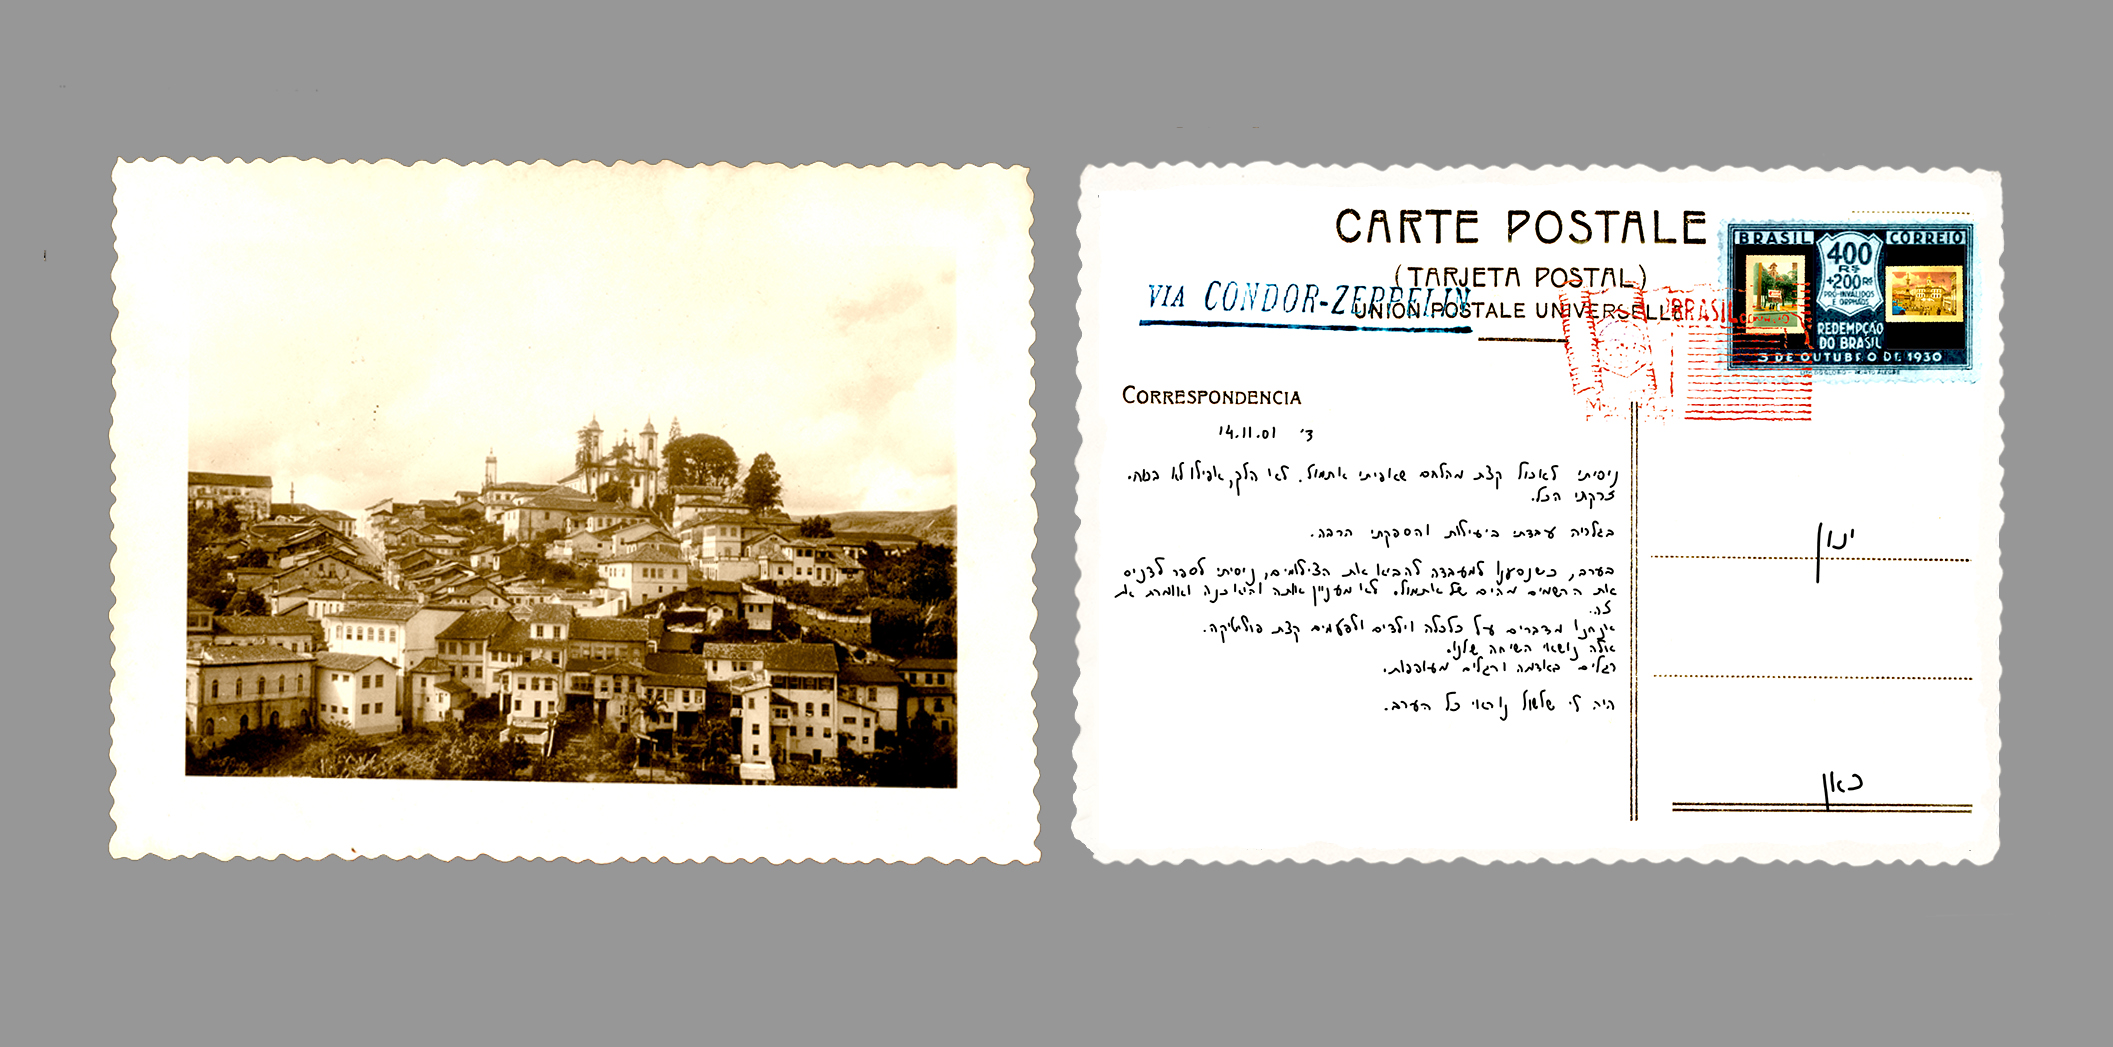 CARTE POSTALE
(TARJETA POSTAL)
UNION POSTALE UNIVERSELLE
VIA CONDOR-ZEPPELIN
BRASIL CORREIO
400
R$
+200 R$
PRÓ-INVALIDOS
E ORPHÃOS
REDEMPÇÃO
DO BRASIL
3 DE OUTUBRO DE 1930
BRASIL
CORRESPONDENCIA
ד' 14.11.01
ניסיתי לאכול קצת מהלחם שאפיתי אתמול. לא הלך, אפילו לא בכוח.
זרקתי הכל.
בגלריה עבדתי ביעילות והספקתי הרבה.
בערב, כשנסענו למעבדה להביא את הצילומים, ניסיתי לספר לדניס
את הרשמים מהים של אתמול. לא מעניין אותה והיא כנה ואומרת את
זה.
אנחנו מדברים על כלכלה וילדים ולפעמים קצת פוליטיקה.
אלה נושאי השיחה שלנו.
רגלים באדמה ורגלים מעופפות.
היה לי שלשול נוראי כל הערב.
ינון
כאן